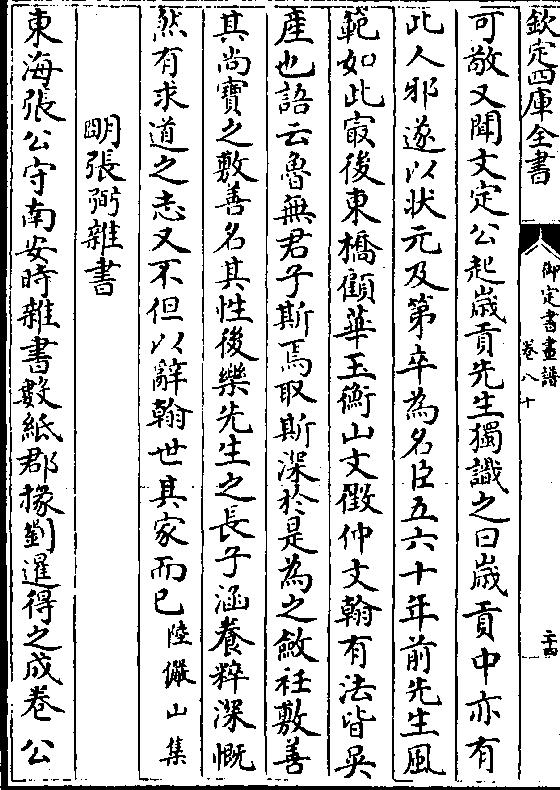 欽定四庫全書
御定書畫譜
卷八十
二十四
可敬又聞文定公起歲貢先生獨識之曰歲貢中亦有
此人邪遂以狀元及第卒為名臣五六十年前先生風
範如此最後東橋顧華玉衡山文徵仲文翰有法皆吳
產也語云魯無君子斯焉取斯深於是為之斂衽敷善
其尚寶之敷善名其性後樂先生之長子涵養粹深慨
然有求道之志又不但以辭翰世其家而已陸儼山集
明張弼雜書
東海張公守南安時雜書數紙郡掾劉暹得之成卷公